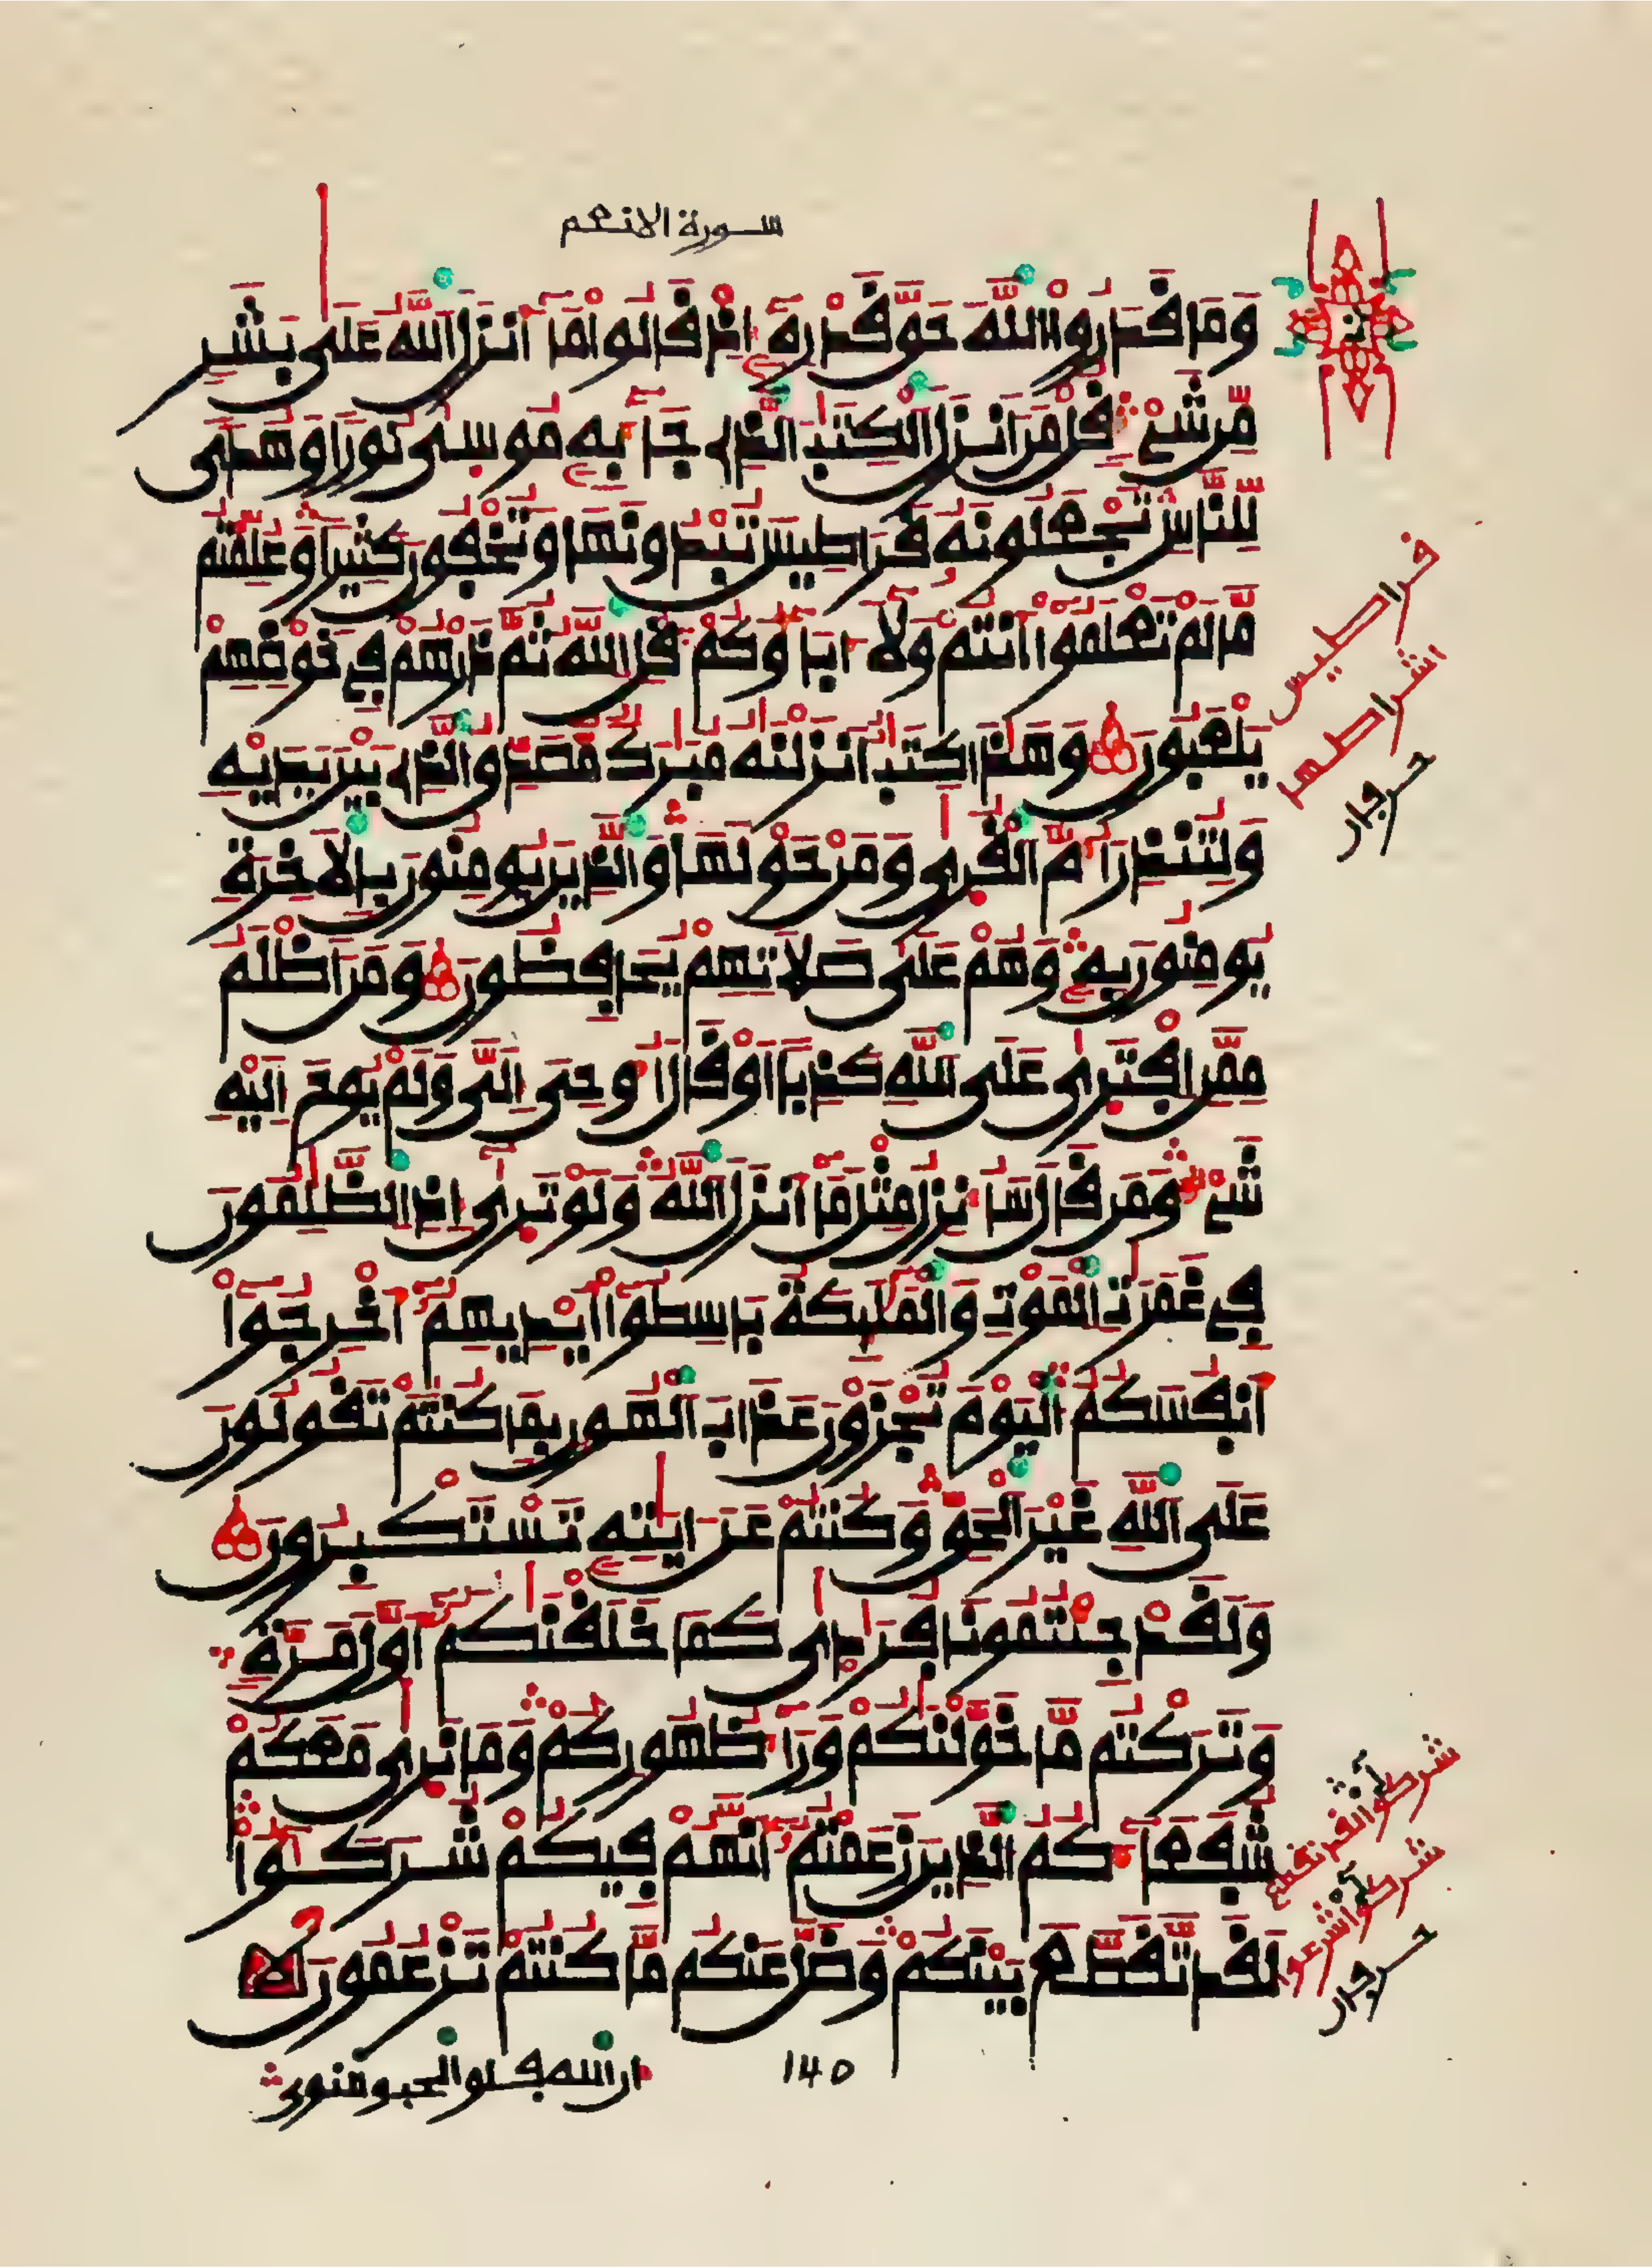 سورة الانعم
وَمَا قَدَرُوا۟ اللَّهَ حَقَّ قَدْرِهِ إِذْ قَالُوا مَا أَنزَلَ اللَّهُ عَلَى بَشَرٍ
مِّن شَيْءٍ قُلْ مَنْ أَنزَلَ الْكِتَبَ الَّذِى جَاءَ بِهِ مُوسَى نُورًا وَهُدًى
لِّلنَّاسِ تَجْعَلُونَهُ قَرَاطِيسَ تُبْدُونَهَا وَتُخْفُونَ كَثِيرًا وَعُلِّمْتُم
مَّا لَمْ تَعْلَمُوا أَنتُمْ وَلَا ءَابَاؤُكُمْ قُلِ اللَّهُ ثُمَّ ذَرْهُمْ فِي خَوْضِهِمْ
يَلْعَبُونَ وَهَذَا كِتَبٌ أَنزَلْنَهُ مُبَرَكٌ مُّصَدِّقُ الَّذِى بَيْنَ يَدَيْهِ
وَلِتُنذِرَ أُمَّ الْقُرَى وَمَنْ حَوْلَهَا وَالَّذِينَ يُومِنُونَ بِالَاخِرَةِ
يُومِنُونَ بِهِ وَهُمْ عَلَى صَلَاتِهِمْ يُحَافِظُونَ وَمَنَ اَظْلَمُ
مِمَّنِ افْتَرَى عَلَى اللَّهِ كَذِبًا أَوْ قَالَ أُوحِيَ إِلَيَّ وَلَمْ يُوحَ إِلَيْهِ
شَيْءٌ وَمَن قَالَ سَأُنزِلُ مِثْلَ مَا أَنزَلَ اللَّهُ وَلَوْ تَرَى إِذِ الظَّلِمُونَ
فِي غَمَرَتِ الْمَوْتِ وَالْمَلَئِكَةُ بَاسِطُوا أَيْدِيهِمْ أَخْرِجُوا
أَنفُسَكُمُ الْيَوْمَ تُجْزَوْنَ عَذَابَ الْهُونِ بِمَا كُنتُمْ تَقُولُونَ
عَلَى اللَّهِ غَيْرَ الْحَقِّ وَكُنتُمْ عَنَ ايَتِهِ تَسْتَكْبِرُونَ
وَلَقَدْ جِئْتُمُونَا فُرَادَى كَمَا خَلَقْنَكُمْ أَوَّلَ مَرَّةٍ
وَتَرَكْتُم مَّا خَوَّلْنَكُمْ وَرَاءَ ظُهُورِكُمْ وَمَا نَرَى مَعَكُمْ
شُفَعَاءَكُمُ الَّذِينَ زَعَمْتُمْ أَنَّهُمْ فِيكُمْ شُرَكَؤُا
لَقَد تَّقَطَّعَ بَيْنَكُمْ وَضَلَّ عَنكُم مَّا كُنتُمْ تَزْعُمُونَ
140
ان الله فلق الحب والنوى
قراطيس